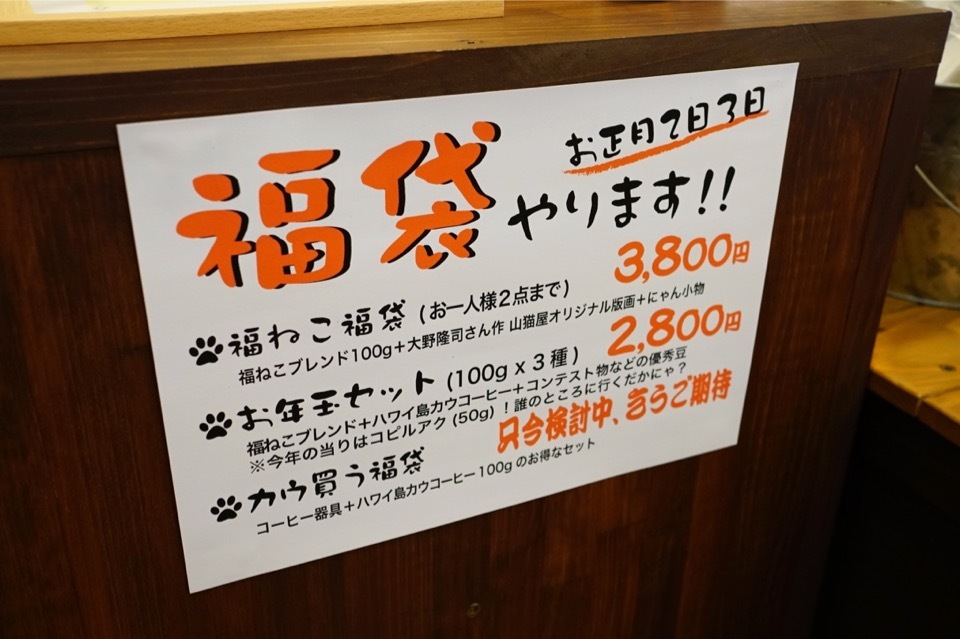 お正月2日3日
福袋やります!!
福ねこ福袋 (お一人様2点まで) 3,800円
福ねこブレンド100g+大野隆司さん作 山猫屋オリジナル版画+にゃん小物
お年玉セット (100g x 3種) 2,800円
福ねこブレンド+ハワイ島カウコーヒー+コンテスト物などの優秀豆
※今年の当りはコピルアク(50g)!誰のところに行くだかにゃ?
カウ買う福袋 只今検討中、乞うご期待
コーヒー器具+ハワイ島カウコーヒー100gのお得なセット